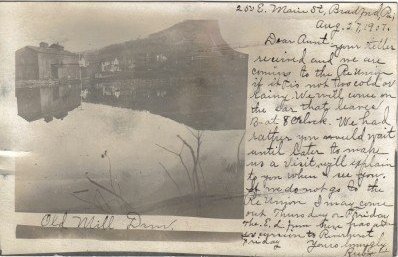 250 E. Main St, Bradford, Pa,
Aug. 27, 1907.
Dear Aunt,
your letter
received and we are
coming to the Reunion
if it is not too cold or
rainy. We will come on
the car that leaves
B- at 8 o'clock. We had
rather you would wait
until later to make
us a visit, will explain
to you when I see you.
If we do not go to the
Reunion I may come
out Thursday or Friday
The. E. L. from here has an
excursion to
Friday Yours lovingly
Old Mill Dam.